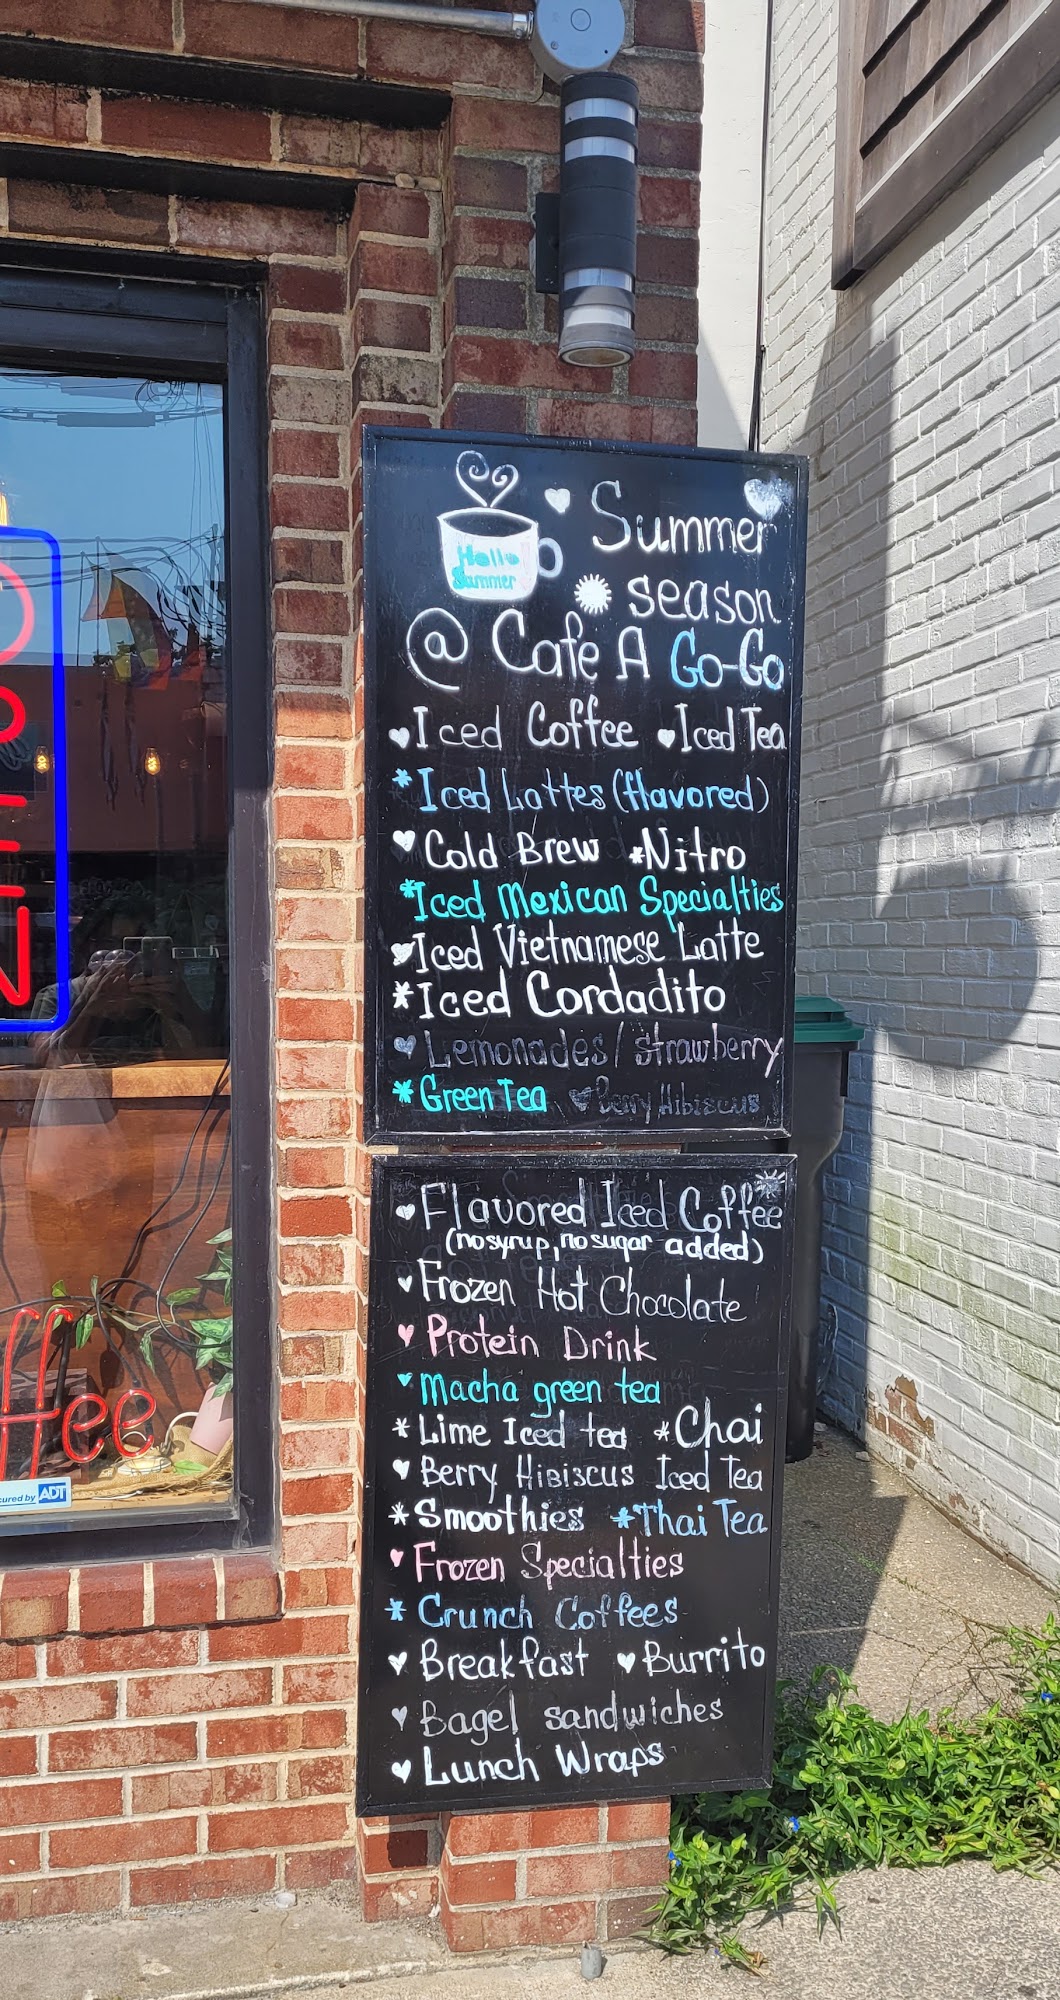 Hello
Summer
Summer
season
@ Cafe A Go-Go
Iced Coffee Iced Tea
* Iced Lattes (flavored)
Cold Brew *Nitro
*Iced Mexican Specialties
Iced Vietnamese Latte
*Iced Cordadito
Lemonades/strawberry
*Green Tea Berry Hibiscus
Flavored Iced Coffee
(no syrup, no sugar added)
Frozen Hot Chocolate
Protein Drink
Macha green tea
* Lime Iced tea *Chai
Berry Hibiscus Iced Tea
*Smoothies *Thai Tea
Frozen Specialties
* Crunch Coffees
Breakfast Burrito
Bagel sandwiches
Lunch Wraps
OPEN
ffee
cured by ADT